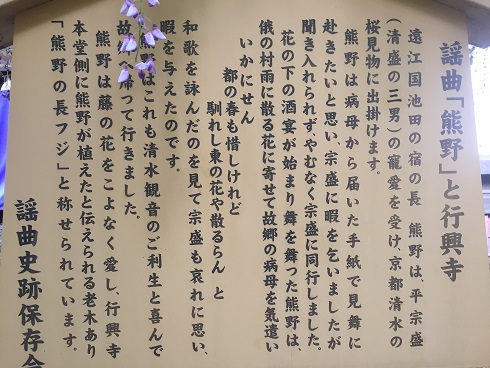 謡曲「熊野」と行興寺
遠江国池田の宿の長 熊野は、平宗盛
(清盛の三男)の寵愛を受け、京都清水の
桜見物に出掛けます。
熊野は病母から届いた手紙で見舞に
赴きたいと思い、宗盛に暇を乞いましたが
聞き入れられず、やむなく宗盛に同行しました。
花の下の酒宴が始まり舞を舞った熊野は、
俄の村雨に散る花に寄せて故郷の病母を気遣い
いかにせん
都の春も惜しけれど
馴れし東の花や散るらん と
和歌を詠んだのを見て宗盛も哀れに思い、
暇を与えたのです。
熊野はこれも清水観音のご利生と喜んで
故郷へ帰って行きました。
熊野は藤の花をこよなく愛し、行興寺
本堂側に熊野が植えたと伝えられる老木あり
「熊野の長フジ」と称せられています。
謡曲史跡保存会